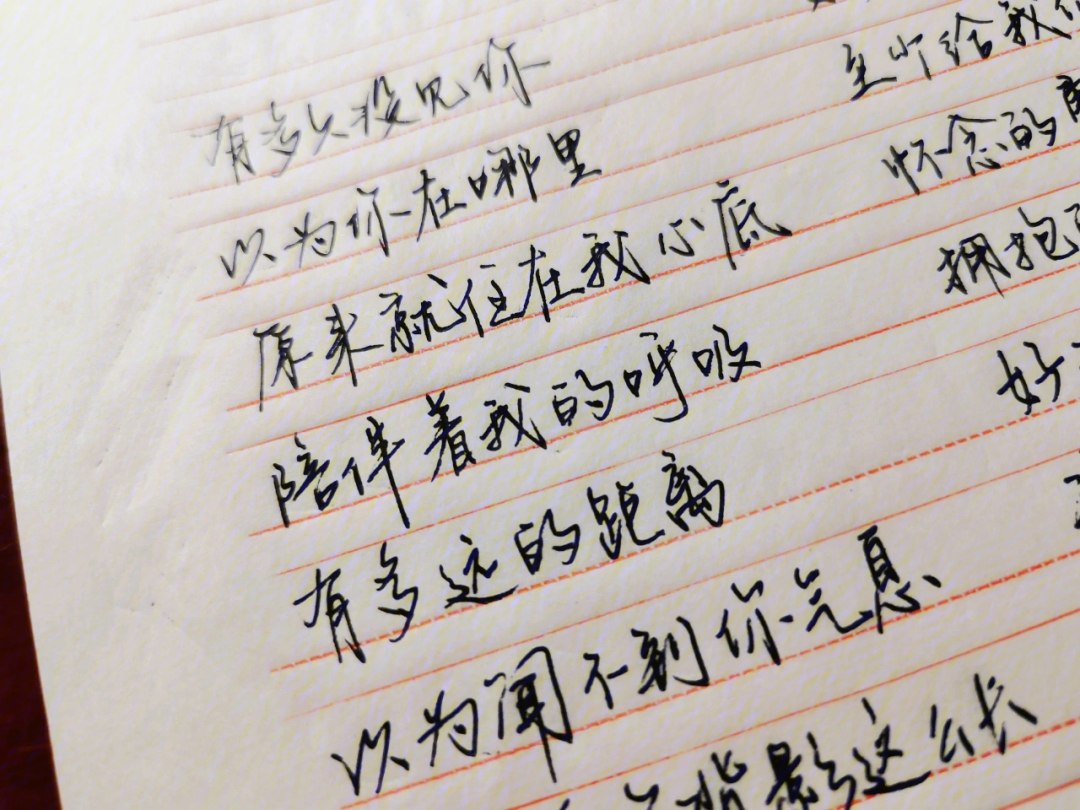 有多久没见你
以为你在哪里
原来就住在我心底
陪伴着我的呼吸
有多远的距离
以为闻不到你气息
背影这么长
给我
怀念的
拥抱
好